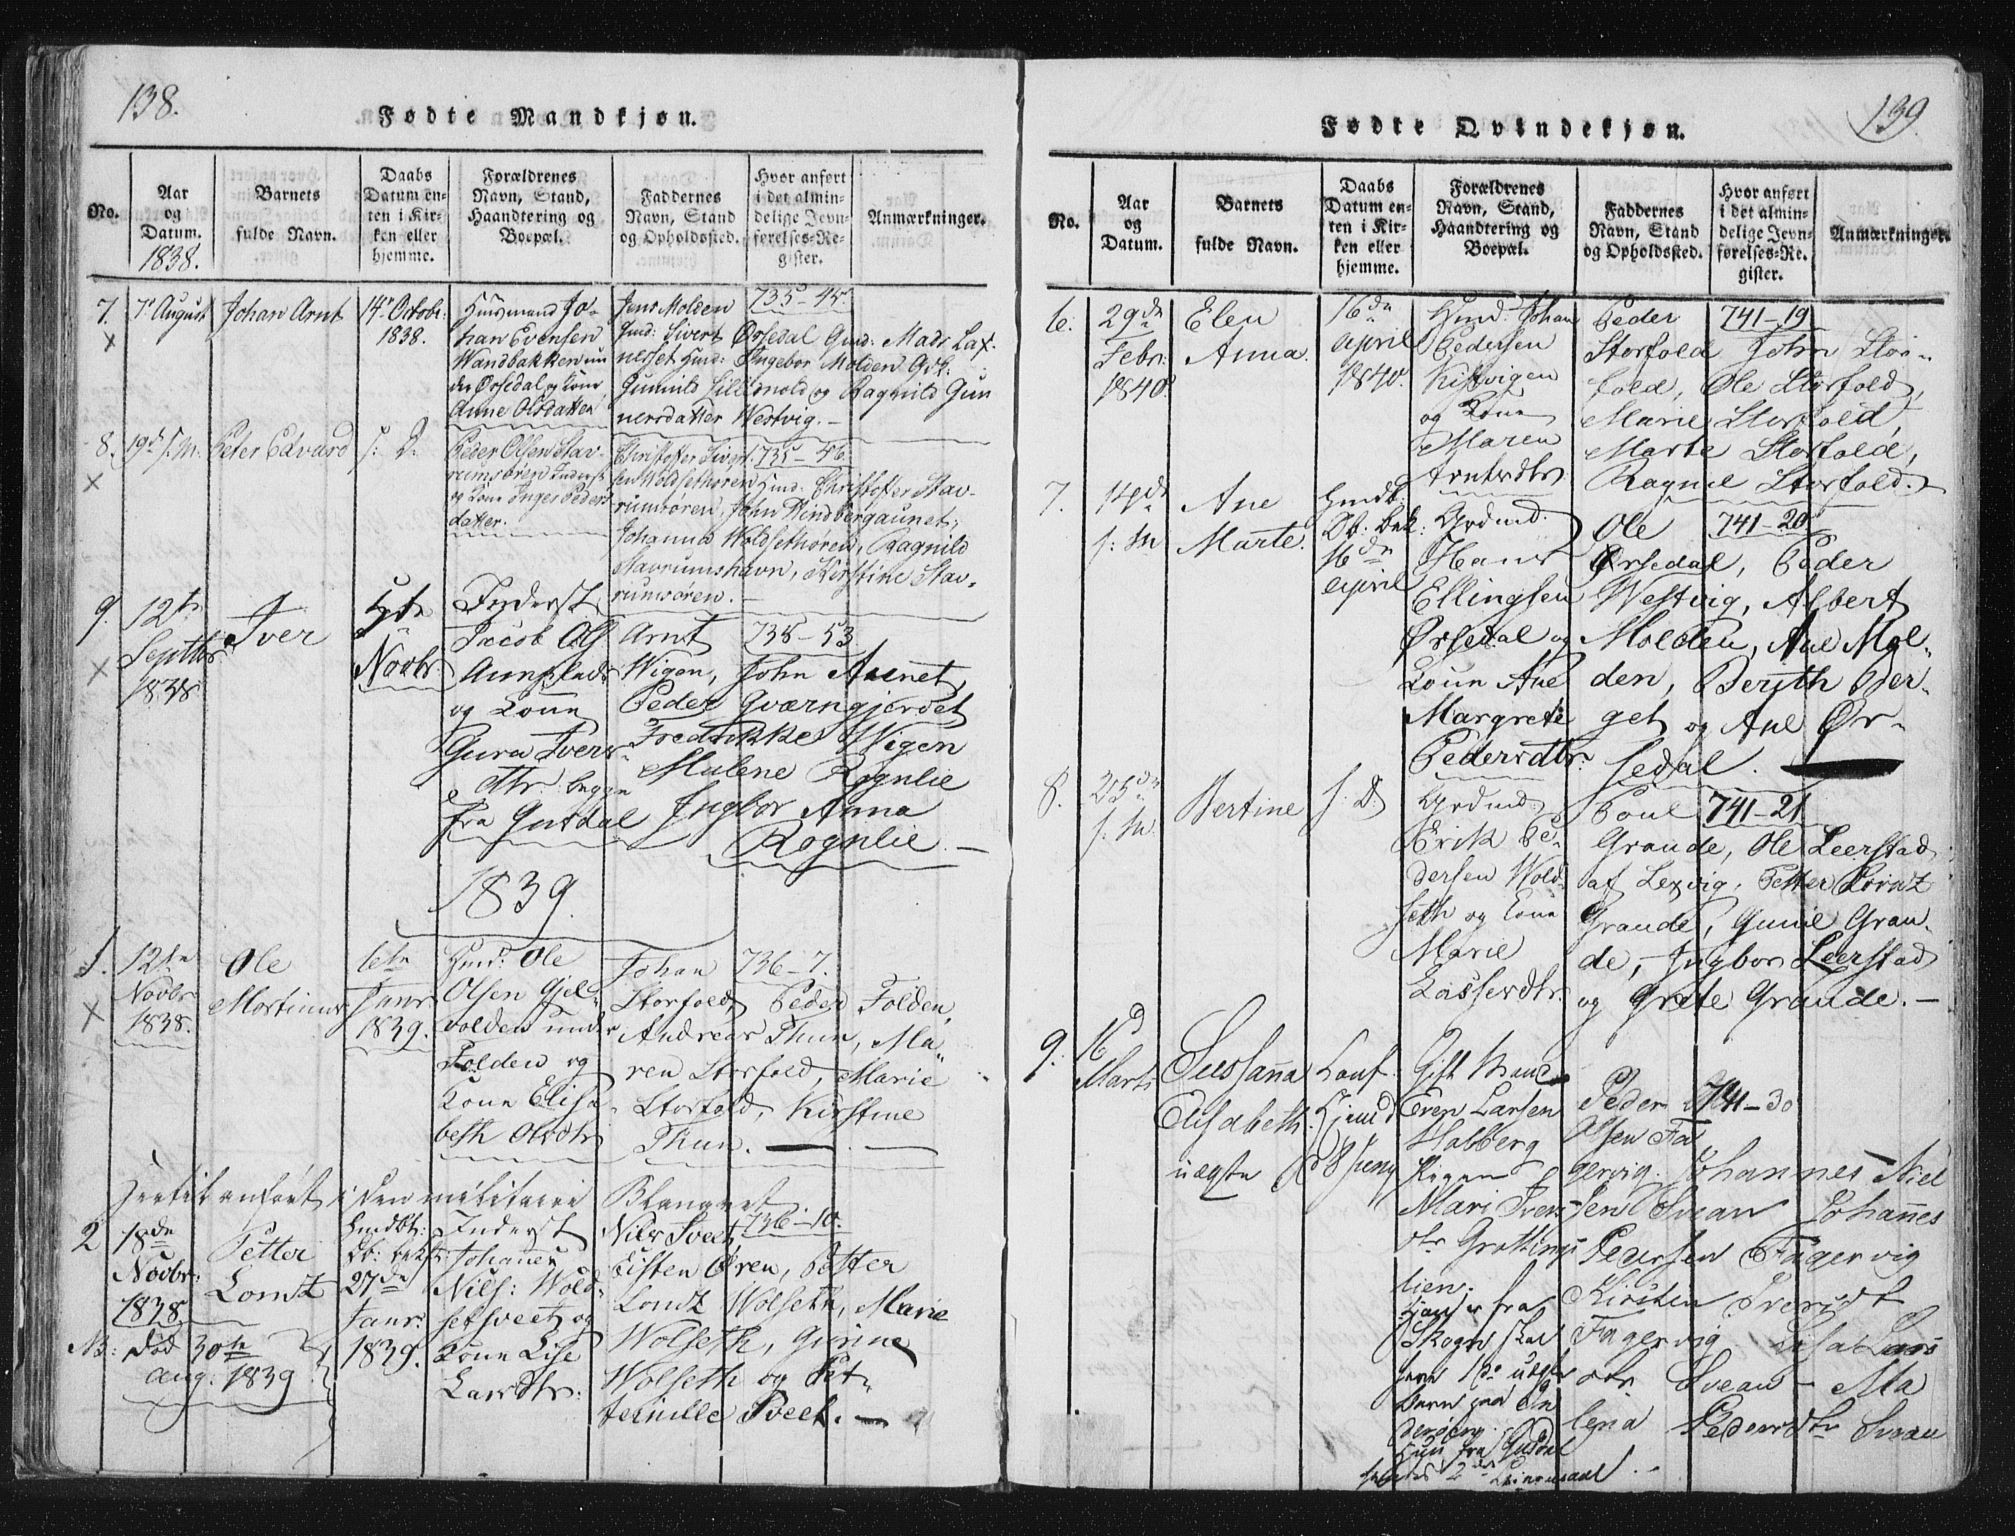 138.
Fødte Mandkjøn.
No.
Aar
og
Datum.
1838.
Barnets
fulde Navn.
Daabs
Datum en-
ten i Kir-
ken eller
hjemme.
Forældrenes
Navn, Stand,
Haandtering og
Boepæl.
Faddernes
Navn, Stand
og Opholdssted.
Hvor anført
i det almin-
delige Jevn-
førelses-Re-
gister.
Anmærkninger.
7.
7de August
Johan Arnt
14de Octobr:
1838.
Huusmand Jo-
han Evensen
Wandbakken un-
der Ørsedal og Kone
Anne Olsdatter
Jens Molden 735-45
Gmd: Sivert Ørsedal Gmd: Mads Lax-
nesset Hmd: Ingebor Molden Gdk:
Gunnild Lillemold og Ragnild Gun
nersdatter Westvig.
8.
19de s. M.
Peter Edvard
s. D.
Peder Olsen Stav-
rumsøren Inderst
og Kone Inger Peders
datter.
Christoffer Sivert 735-46
sen Woldsethøren Hmd. Christoffer Stav-
rumsøren, John Hindbergaunet,
Johanna Woldsethøren, Ragnild
Stavrumshavn, Kirstine Stav-
rumsøren.
9.
12te
Septbr
1838
Iver
4de
Novbr
Inderst
Jacob Ols
Aunplads
og Kone
Gura Ivers-
dtr. begge
fra Guldal
Arnt 735-53
Wigen, John Aunet,
Peder Qværngjerdet
Fredrikke Wigen
Malene Rognlie
Ingbor Anna
Rognlie.
1839.
1.
12te
Novbr
1838.
Ole
Mortinus
6te
Janr
1839.
Hmd: Ole
Olsen Gjel-
volden under
Folden og
Kone Elisa
beth Olsdtr
Johan 736-7.
Storfold, Peder Folden,
Andreas Thun, Ma-
ren Storfold, Marie
Storfold, Kirstine
Thun.
Hertil anført i den militaire Blanquet
2
18de
Novbr:
1838.
Petter
Lorntz
Hmdbt:
Ob: bekr:
27de
Janr:
1839.
Inderst
Johannes
Nils: Wold-
setsveet og
Kone Lise
Larsdtr:
Nils Sveet, 736-10.
Eisten Øren, Petter
Lorntz Wolseth, Marie
Wolseth, Gurine
Wolseth og Pet-
ternille Sveet.
NB: død 30te
Aug: 1839
139.
Fødte Qvindekjøn.
No.
Aar
og
Datum.
Barnets
fulde Navn.
Daabs
Datum en-
ten i Kir-
ken eller
hjemme.
Forældrenes
Navn, Stand,
Haandtering og
Boepæl.
Faddernes
Navn, Stand
og Opholdssted.
Hvor anført
i det almin-
delige Jevn-
førelses-Re-
gister.
Anmærkninger.
6.
29de
Febr:
1840.
Elen
Anna.
16de
April
1840.
Hmd. Johan
Pedersen
Kistvigen
og Kone
Maren
Arntsdtr
Peder 741-19
Storfold John Stor-
fold, Ole Storfold,
Marie Storfold,
Marte Storfold,
Ragnil Storfold.
7.
14de
s: M
Ane
Marte.
Hmdt:
Ob. bek:
16de
April
Grdmd.
Hans
Ellingsen
Ørsedal og
Kone Ane
Margrete
Pedersdtr.
Ole 741-20
Ørsedal, Peder
Westvig, Albert
Molden, Ane Mol-
den, Berith Ber-
get og Ane Ør-
sedal.
8.
25de
s. M.
Bertine
s. D.
Grdmd.
Erik Pe-
dersen Wold-
seth og Kone
Marie
Lassesdtr.
Poul 741-21
Grande, Ole Leerstad
af Lexvig, Petter Lorntz
Grande, Gunil Gran-
de, Ingbor Leerstad
og Grete Grande.
9.
16d
Marts
Sussanna
Elisabeth.
uægte
Conf.
Hjemd
d 8 Juny
Gift Mand
Even Larsen
Habberg
Pigen
Mari Ivers
dtr Grottings
lien.
Han er fra
Skogn skal
have 1ste uægte
Barn paa In
derøen.
Hun fra Guldal
hendes 2de Leiermaal
Peder 741-30
Olsen Fa
gervig. Johannes Niel
sen Svean Johannes
Pedersen Fagervig
Kirsten Iversdt
Fagervig Lisa Lars
dtr. Svean - Ma
lena Pedersdtr Svean